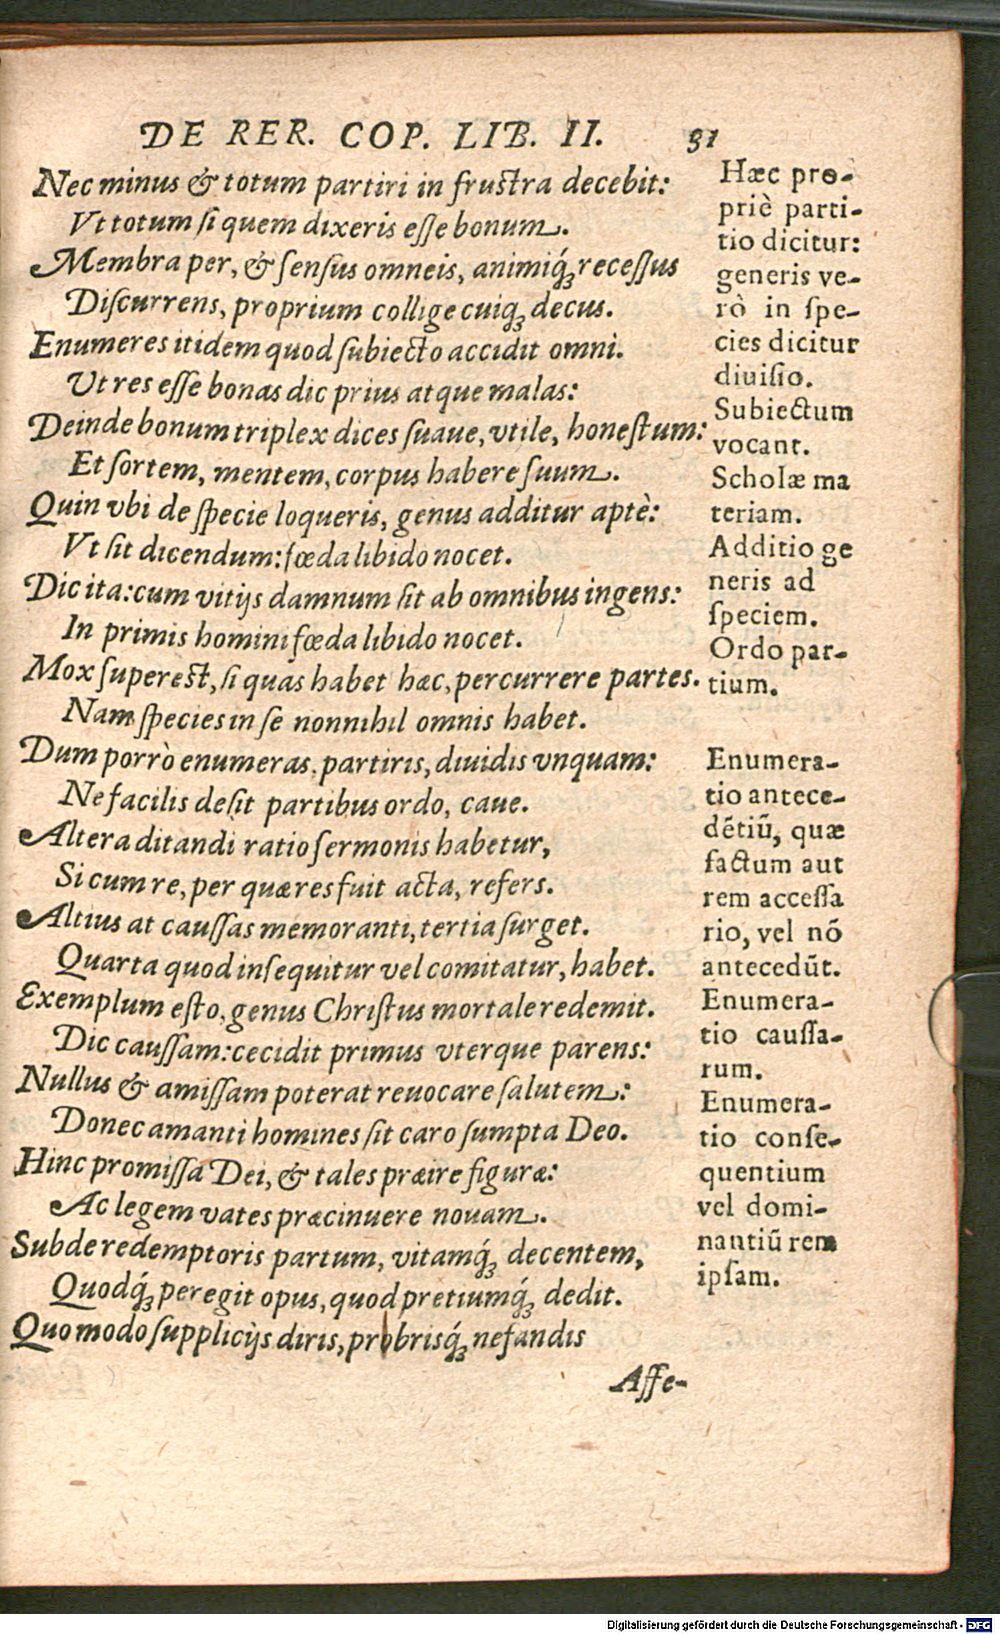 DE RER. COP. LIB. II. 31
Nec minus & totum partiri in frustra decebit:
Vt totum si quem dixeris esse bonum.
Membra per, & sensus omneis, animiq́ꝫ recessus
Discurrens, proprium collige cuiqꝫ decus.
Enumeres itidem quod subiecto accidit omni.
Ut res esse bonas dic prius atque malas:
Deinde bonum triplex dices suaue, vtile, honestum:
Et sortem, mentem, corpus habere suum.
Quin vbi de specie loqueris, genus additur aptè:
Vt sit dicendum: fœda libido nocet.
Dic ita: cum vitijs damnum sit ab omnibus ingens:
In primis homini fœda libido nocet.
Mox superest, si quas habet hæc, percurrere partes.
Nam species in se nonnihil omnis habet.
Dum porrò enumeras, partiris, diuidis vnquam:
Ne facilis desit partibus ordo, caue.
Altera ditandi ratio sermonis habetur,
Si cum re, per quæ res fuit acta, refers.
Altius at caussas memoranti, tertia surget.
Quarta quod insequitur vel comitatur, habet.
Exemplum esto, genus Christus mortale redemit.
Dic caussam: cecidit primus vterque parens:
Nullus & amissam poterat reuocare salutem:
Donec amanti homines sit caro sumpta Deo.
Hinc promissa Dei, & tales præire figuræ:
Ac legem vates præcinuere nouam.
Subde redemptoris partum, vitamq́ꝫ decentem,
Quodq́ꝫ peregit opus, quod pretiumq́ꝫ dedit.
Quomodo supplicijs diris, probrisq́ꝫ nefandis
Affe-
Hæc pro-
priè parti-
tio dicitur:
generis ve-
rò in spe-
cies dicitur
diuisio.
Subiectum
vocant.
Scholæ ma
teriam.
Additio ge
neris ad
speciem.
Ordo par-
tium.
Enumera-
tio antece-
dētiū, quæ
factum aut
rem accessa
rio, vel nō
antecedūt.
Enumera-
tio caussa-
rum.
Enumera-
tio conse-
quentium
vel domi-
nantiū rem
ipsam.
Digitalisierung gefördert durch die Deutsche Forschungsgemeinschaft - DFG